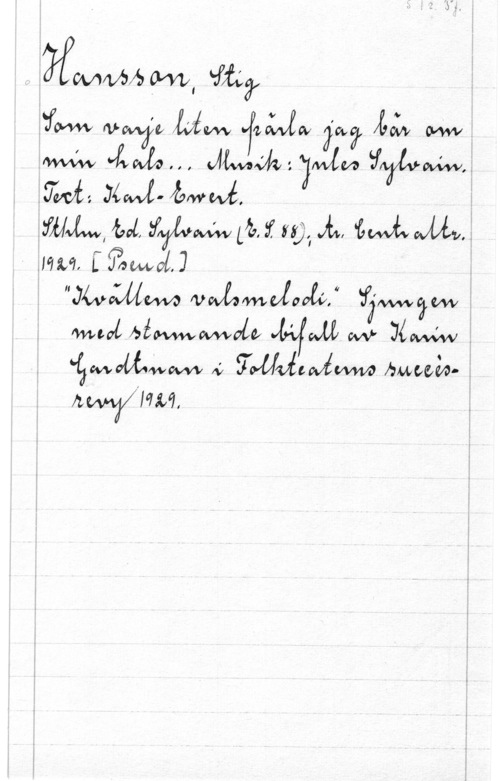 Hansson, Stig
Som varje liten pärla jag bär om
min hals... Musik: Jules Sylvain.
Text: Karl-Ewert.
Sthlm, Ed. Sylvain (E. S. 88); tr. Centraltr.
1929. [Pseud.]
"Kvällens valsmelodi." Sjungen
med stormande bifall av Karin
Gardtman i Folkteaterns succès-
revy 1929.